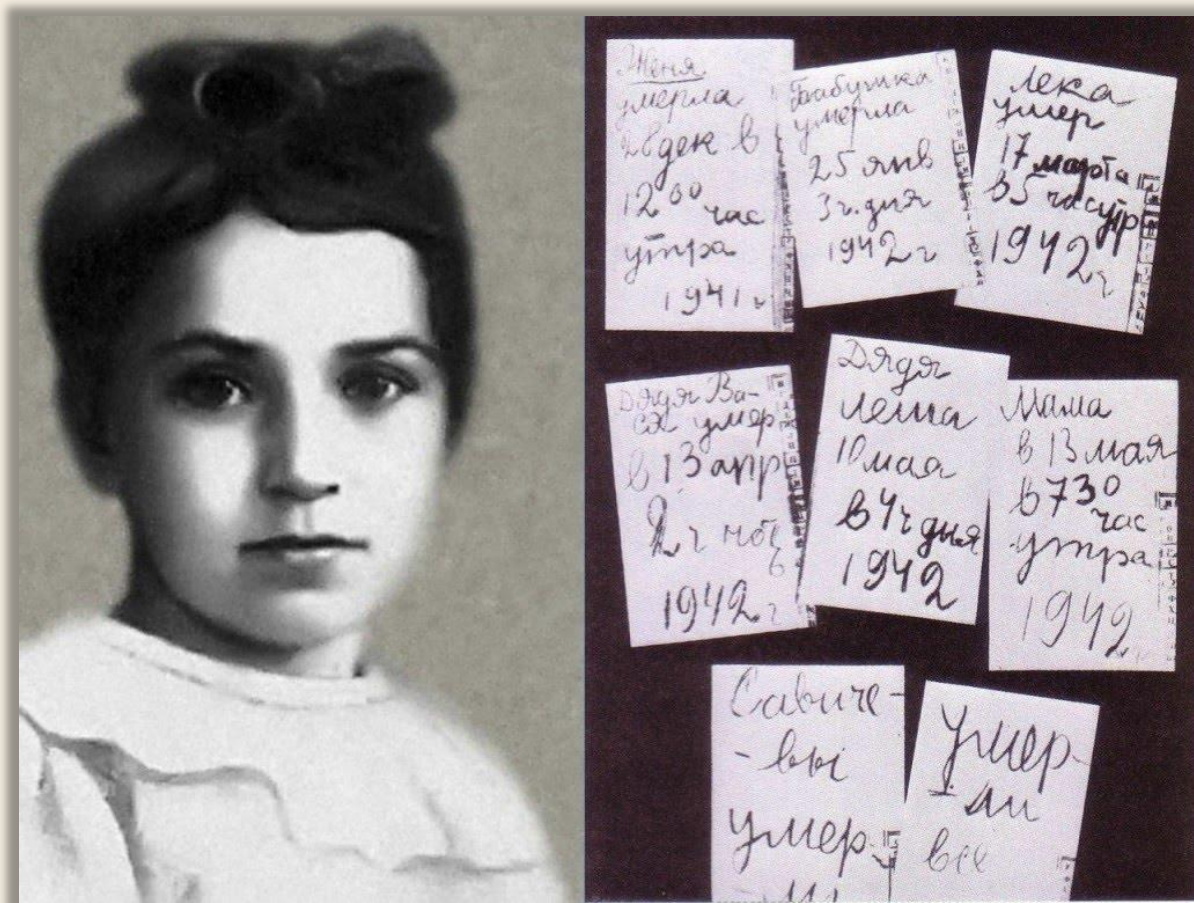 Женя
умерла
28 дек в
12 00 час
утра
1941 г
Бабушка
умерла
25 янв
3 ч. дня
1942 г
Лека
умер
17 марта
в 5 час утр
1942 г
Дядя Ва-
ся умер
в 13 апр
2 ч ноч
1942 г
Дядя
Леша
10 мая
в 4 ч дня
1942
Мама
в 13 мая
в 7 30
час
утра
1942 г
Савиче-
-вы
умер-
ли
Умер-
-ли
все